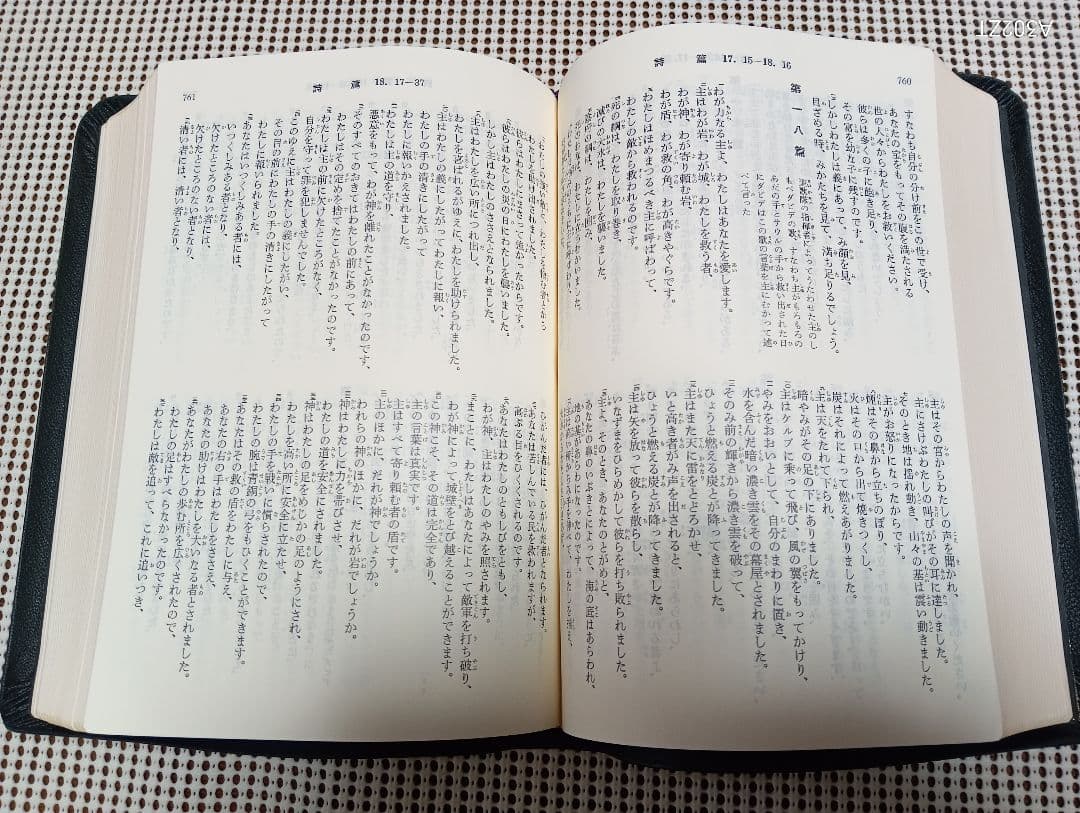 A302ZT
詩篇 17. 15―18. 16
760
すなわち自分の分け前をこの世で受け、
あなたの宝をもってその腹を満たされる
世の人々からわたしをお救いください。
彼らは多くの子に飽き足り、
その富を幼な子に残すのです。
しかしわたしは義にあって、み顔を見、
目ざめる時、みかたちを見て、満ち足りるでしょう。
第一八篇
聖歌隊の指揮者によってうたわせた主のし
もべダビデの歌、すなわち主がもろもろの
あだの手とサウルの手から救い出された日
にダビデはこの歌の言葉を主にむかって述
べて言った
わが力なる主よ、わたしはあなたを愛します。
主はわが岩、わが城、わたしを救う者、
わが神、わが寄り頼む岩、
わが盾、わが救の角、わが高きやぐらです。
わたしはほめまつるべき主に呼ばわって、
わたしの敵から救われるのです。
死の綱は、わたしを取り巻き、
滅びの大水は、わたしを襲いました。
陰府の綱は、わたしを囲み、
主はその宮からわたしの声を聞かれ、
主にさけぶわたしの叫びがその耳に達しました。
そのとき地は揺れ動き、山々の基は震い動きました。
主がお怒りになったからです。
煙はその鼻から立ちのぼり、
火はその口から出て焼きつくし、
炭はそれによって燃えあがりました。
主は天をたれて下られ、
暗やみがその足の下にありました。
主はケルブに乗って飛び、風の翼をもってかけり、
やみをおおいとして、自分のまわりに置き、
水を含んだ暗い濃き雲をその幕屋とされました。
そのみ前の輝きから濃き雲を破って、
ひょうと燃える炭とが降ってきました。
主はまた天に雷をとどろかせ、
いと高き者がみ声を出されると、
ひょうと燃える炭とが降ってきました。
主は矢を放って彼らを散らし、
いなずまをひらめかして彼らを打ち敗られました。
主よ、そのとき、あなたのとがめと、
あなたの鼻のいぶきとによって、海の底はあらわれ、
地の基があらわになったのです。
詩篇 18. 17―37
761
彼らはわたしにまさって強かったからです。
彼らはわたしの災の日にわたしを襲いました。
しかし主はわたしのささえとなられました。
主はわたしを広い所につれ出し、
わたしを喜ばれるがゆえに、わたしを助けられました。
主はわたしの義にしたがってわたしに報い、
わたしの手の清きにしたがって
わたしに報いかえされました。
わたしは主の道を守り、
悪意をもって、わが神を離れたことがなかったのです。
そのすべてのおきてはわたしの前にあって、
わたしはその定めを捨てたことがなかったのです。
わたしは主の前に欠けたところがなく、
自分を守って罪を犯しませんでした。
このゆえに主はわたしの義にしたがい、
その目の前にわたしの手の清きにしたがって
わたしに報いられました。
あなたはいつくしみある者には、
いつくしみある者となり、
欠けたところのない者には、
欠けたところのない者となり、
清い者には、清い者となり、
ひがんだ者には、ひがんだ者となられます。
あなたは苦しんでいる民を救われますが、
高ぶる目をひくくされるのです。
あなたはわたしのともしびをともし、
わが神、主はわたしのやみを照されます。
まことに、わたしはあなたによって敵軍を打ち破り、
わが神によって城壁をとび越えることができます。
この神こそ、その道は完全であり、
主の言葉は真実です。
主はすべて寄り頼む者の盾です。
主のほかに、だれが神でしょうか。
われらの神のほかに、だれが岩でしょうか。
神はわたしに力を帯びさせ、
わたしの道を安全にされました。
神はわたしの足をめじかの足のようにされ、
わたしを高い所に安全に立たせ、
わたしの手を戦いに慣らされたので、
わたしの腕は青銅の弓をもひくことができます。
あなたはその救の盾をわたしに与え、
あなたの右の手はわたしをささえ、
あなたの助けはわたしを大いなる者とされました。
あなたがわたしの歩む所を広くされたので、
わたしの足はすべらなかったのです。
わたしは敵を追って、これに追いつき、